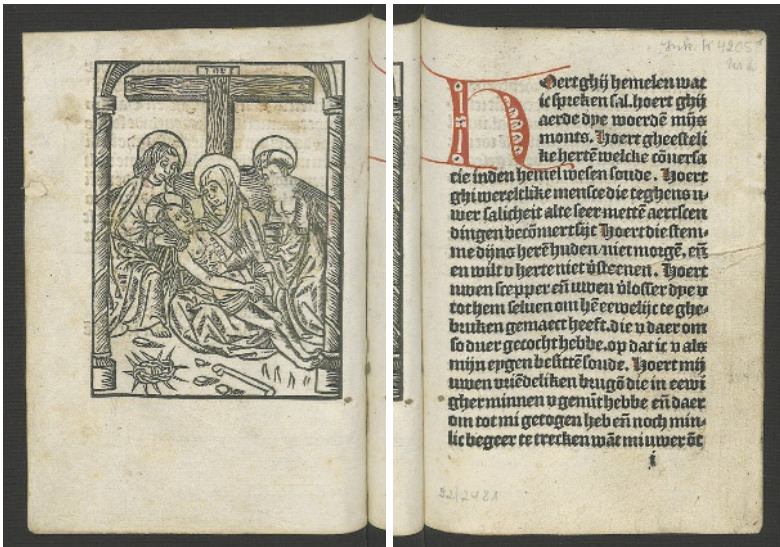 INRI
Hoert ghij hemelen wat
ic spreken sal. hoert ghij
aerde dye woerdē mijs
monts. Hoert gheesteli
ke hertē welcke cōuersa
cie inden hemel wesen soude. Hoert
ghi wereltlike mensce die teghens u-
wer salicheit alte seer mettē aertscen
dingen becōmert sijt Hoert die stem-
me dijns herē huden/niet morgē. eñ
en wilt v herte niet v̄steenen. Hoert
uwen scepper eñ uwen v̄losser dye v
tot hem seluen om hē eewelijc te ghe-
bruken gemaect heeft. die v daer om
so duer gecocht hebbe. op dat ic v als
mijn eygen besittē soude. Hoert mij
uwen vriēdeliken brugō die in eewi
gher minnen v gemīt hebbe eñ daer
om tot mi getogen heb eñ noch min-
lic begeer te trecken wāt mi uwer ōt
i
Ink. K 4205
92/2481